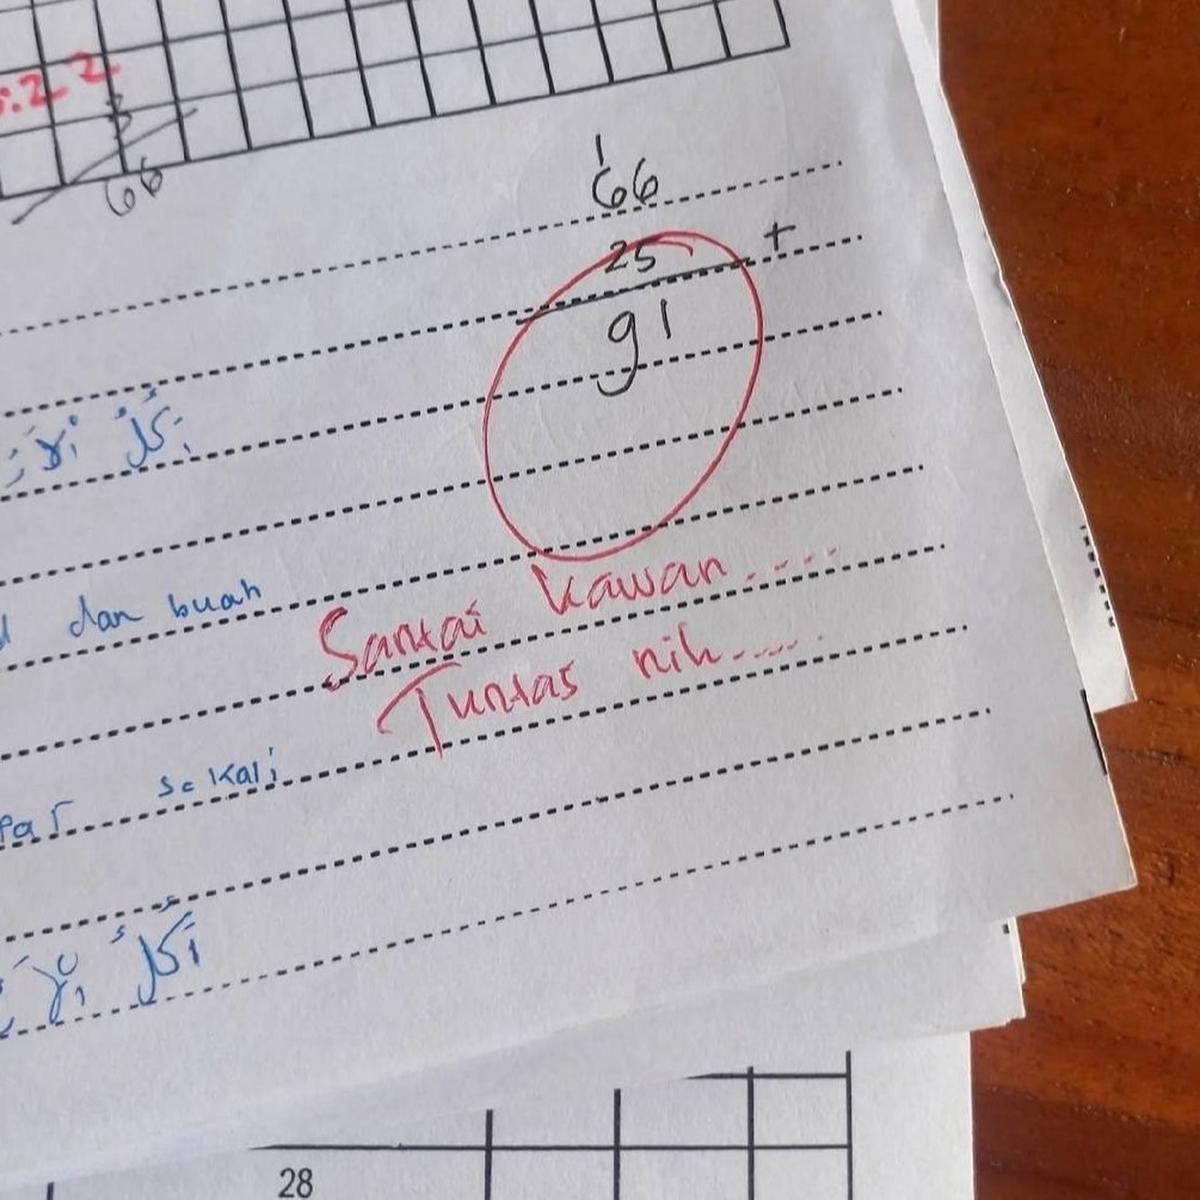 2 2
66
1
66
25 +
91
dan buah
Santai Kawan....
Tuntas nih....
sekali
أكل
28